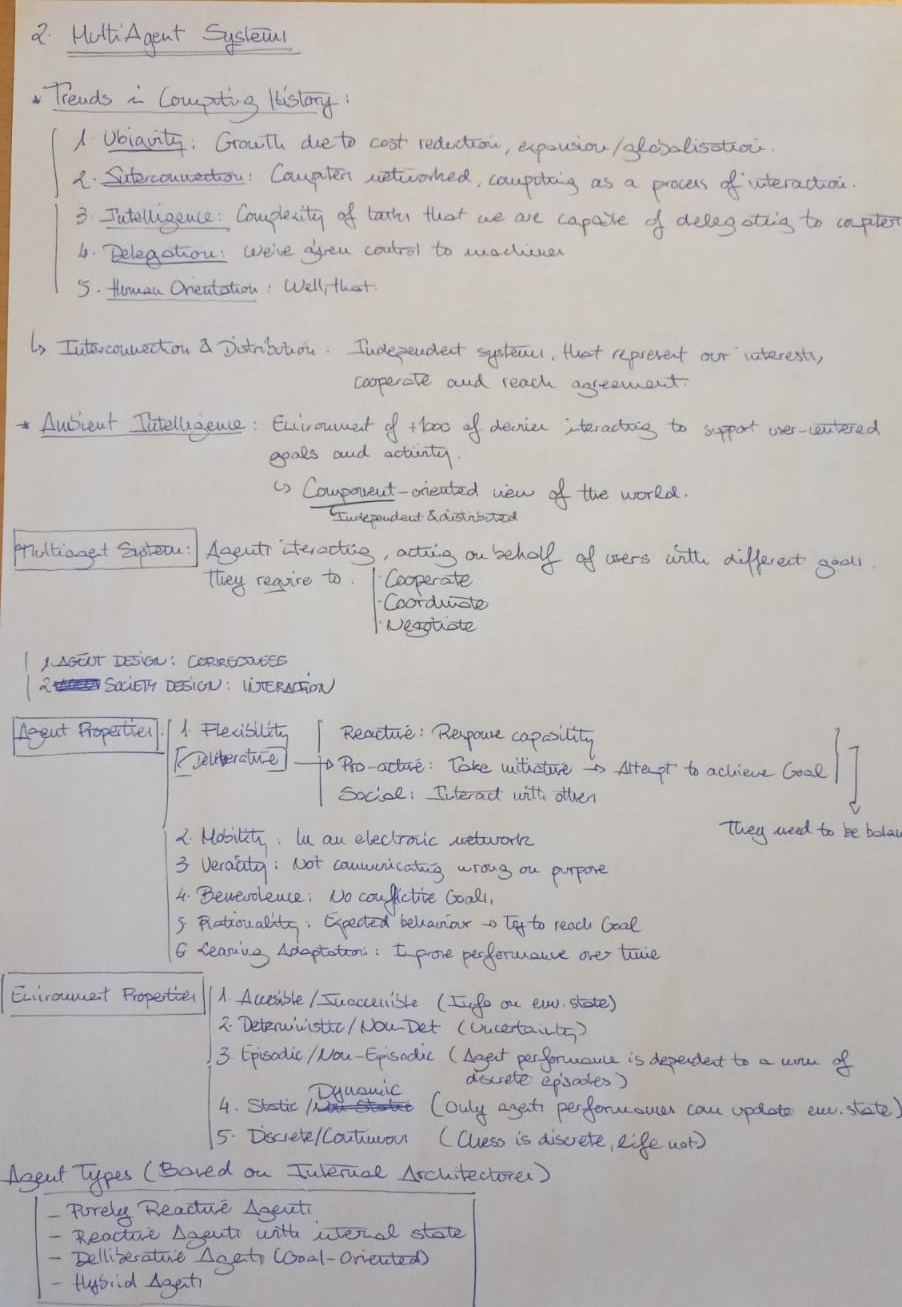 2. MultiAgent Systems
* Trends in Computing History:
1. Ubiquity: Growth due to cost reduction, expansion/globalisation.
2. Interconnection: Computers networked, computing as a process of interaction.
3. Intelligence: Complexity of tasks that we are capable of delegating to computer
4. Delegation: We're given control to machines
5. Human Orientation: Well, that.
↳ Interconnection & Distribution. Independent systems, that represent our interests,
cooperate and reach agreement.
* Ambient Intelligence: Environment of +1000 of devices interacting to support user-centered
goals and activity.
↳ Component-oriented view of the world.
Independent & distributed
Multiagent System: Agents interacting, acting on behalf of users with different goals.
They require to:
· Cooperate
· Coordinate
· Negotiate
1. AGENT DESIGN: CORRECTNESS
2 SOCIETY DESIGN: INTERACTION
Agent Properties: 1. Flexibility
Reactive: Response capability
Deliberative → Pro-active: Take initiative → Attempt to achieve Goal
Social: Interact with others
They need to be balan
2. Mobility: In an electronic network
3 Veracity: Not communicating wrong on purpose
4. Benevolence: No conflictive Goals,
5. Rationality: Expected behaviour → Try to reach Goal
6 Learning Adaptation: Improve performance over time
Environment Properties 1. Accesible/Inaccessible (Info on env. state)
2. Deterministic/Non-Det (Uncertainty)
3. Episodic/Non-Episodic (Agent performance is dependent to a num of
discrete episodes)
4. Static / Dynamic (Only agents performances can update env. state)
5. Discrete/Continuous (Chess is discrete, life not)
Agent Types (Based on Internal Architectures)
- Purely Reactive Agents
- Reactive Agents with internal state
- Delliberative Agents (Goal-Oriented)
- Hybrid Agents